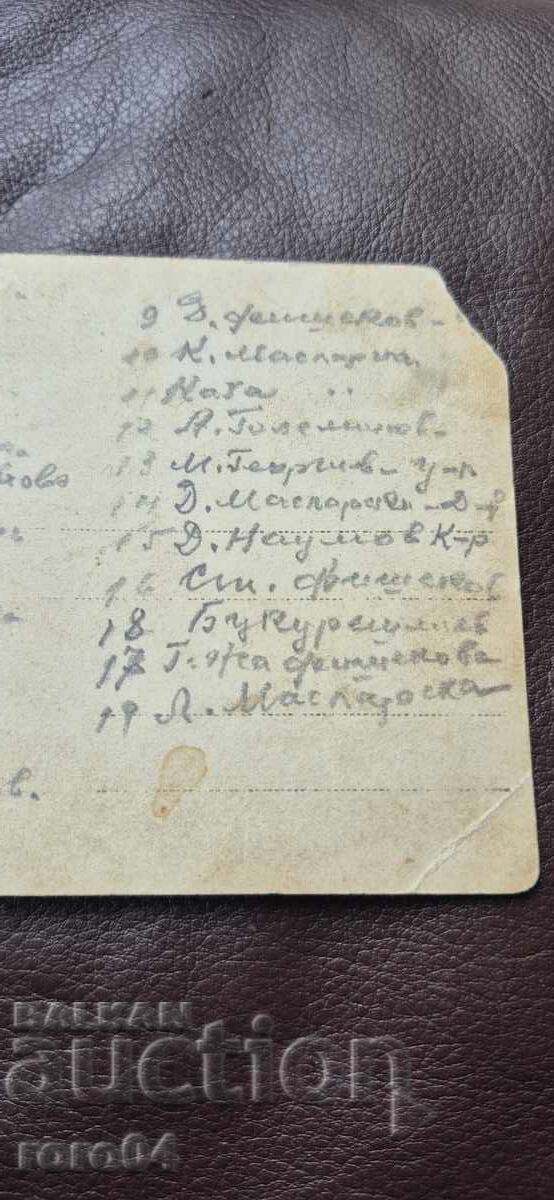 9 Д. Фишеков-
10 К. Маспарска
11 Ката "
12 А. Големинов-
13 М. Георгив- у-л
14 Д. Маспарски-Д-р
15 Д. Наумов К-р
16 Ст. Фишеков
18 Букурещлиев
17 Г-жа Фишекова
19 Л. Маспарска
в.
BALKAN
auction
roro04